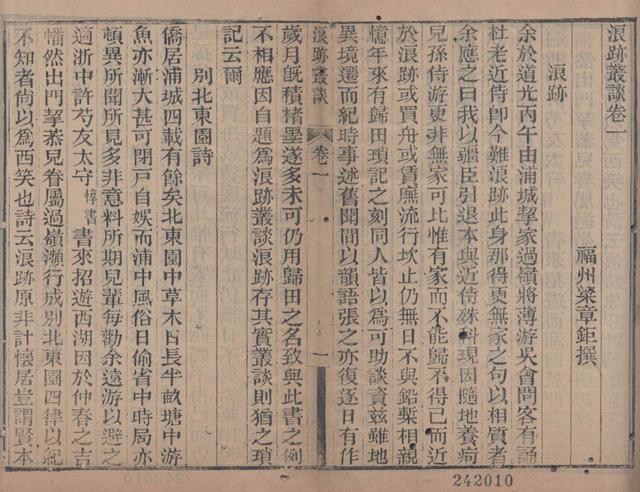 浪跡叢談卷一
福州梁章鉅撰
浪跡
余於道光丙午由浦城挈家過嶺將薄游吳會問客有誦
杜老近侍卽今難浪跡此身那得更無家之句以相質者
余應之曰我以疆臣引退本與近侍殊科現因隨地養疴
兒孫侍游更非無家可比惟有家而不能歸不得已而近
於浪跡或買舟或賃廡流行坎止仍無日不與鉛槧相親
憶年來有歸田瑣記之刻同人皆以為可助談資茲雖地
異境遷而紀時事述舊聞間以韻語張之亦復逐日有作
浪跡叢談
卷一
一
歲月旣積楮墨遂多未可仍用歸田之名致與此書之例
不相應因自題為浪跡叢談浪跡存其實叢談則猶之瑣
記云爾
別北東園詩
僑居浦城四載有餘矣北東園中草木日長半畝塘中游
魚亦漸大甚可閉戸自娛而浦中風俗日偷省中時局亦
頓異所聞所見多非意料所期兒輩每勸余遠游以避之
適浙中許芍友太守惇書書來招遊西湖因於仲春之吉
幡然出門挈恭兒眷屬過嶺瀕行成別北東園四律以紀
不知者尙以為西笑也詩云浪跡原非計懷居豈謂賢本
242010